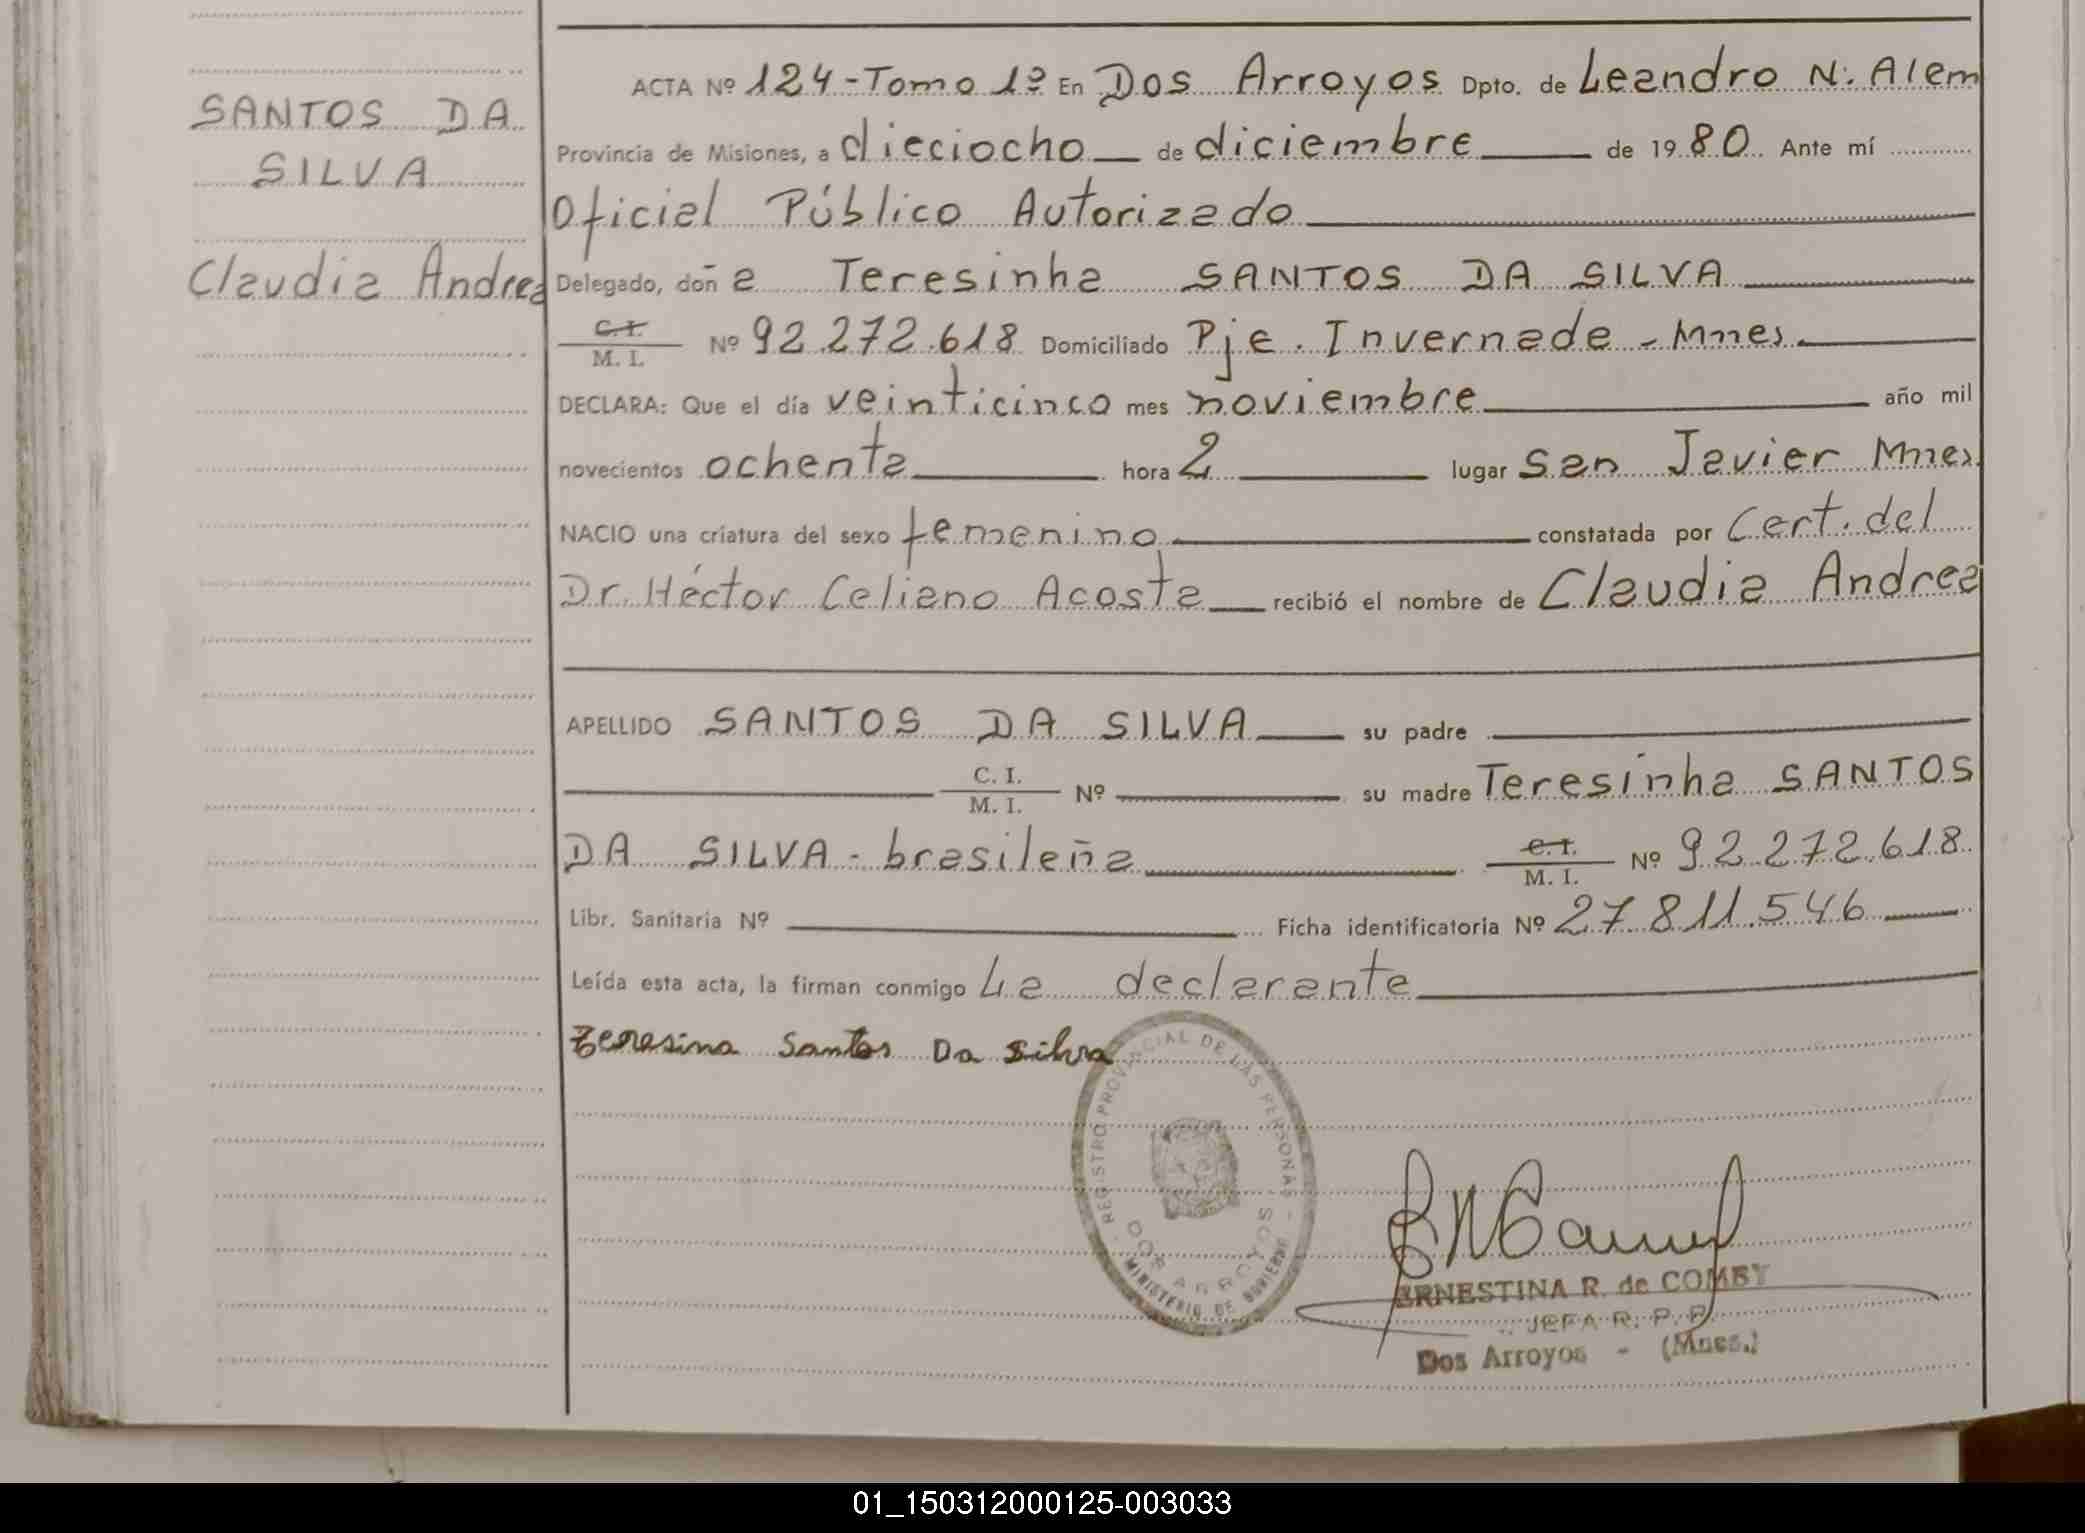 SANTOS DA
SILVA
Claudia Andrea
ACTA Nº 124 - Tomo 1º En Dos Arroyos Dpto. de Leandro N. Alem
Provincia de Misiones, a dieciocho de diciembre de 1980 Ante mí
Oficial Público Autorizado
Delegado, doña Teresinha SANTOS DA SILVA
C.I.
M. I. Nº 92.272.618 Domiciliado Pje. Invernada - Mnes.
DECLARA: Que el día veinticinco mes noviembre año mil
novecientos ochenta hora 2 lugar San Javier Mnes.
NACIO una criatura del sexo femenino constatada por Cert. del
Dr. Héctor Celiano Acosta recibió el nombre de Claudia Andrea
APELLIDO SANTOS DA SILVA su padre
C. I.
M. I. Nº su madre Teresinha SANTOS
DA SILVA - brasileña C.I.
M. I. Nº 92.272.618
Libr. Sanitaria Nº Ficha identificatoria Nº 27.811.546
Leída esta acta, la firman conmigo La declarante
Teresina Santos Da Silva
REGISTRO PROVINCIAL DE LAS PERSONAS
DOS ARROYOS
MINISTERIO DE GOBIERNO
ERNESTINA R. de COMBY
JEFA R. P. P.
Dos Arroyos - (Mnes.)
01_150312000125-003033